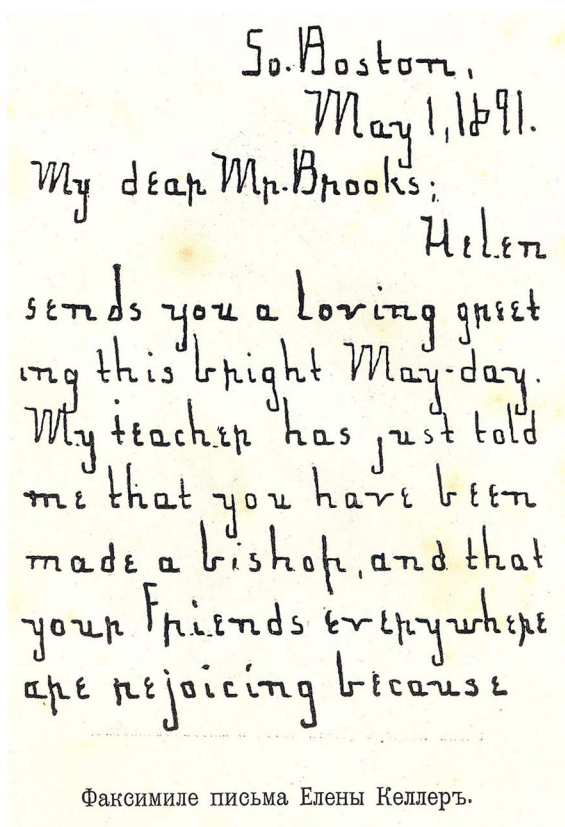 So. Boston,
May 1, 1891.
My dear Mr. Brooks;
Helen
sends you a loving greet
ing this bright May-day.
My teacher has just told
me that you have been
made a bishop, and that
your friends everywhere
are rejoicing because
Факсимиле письма Елены Келлеръ.